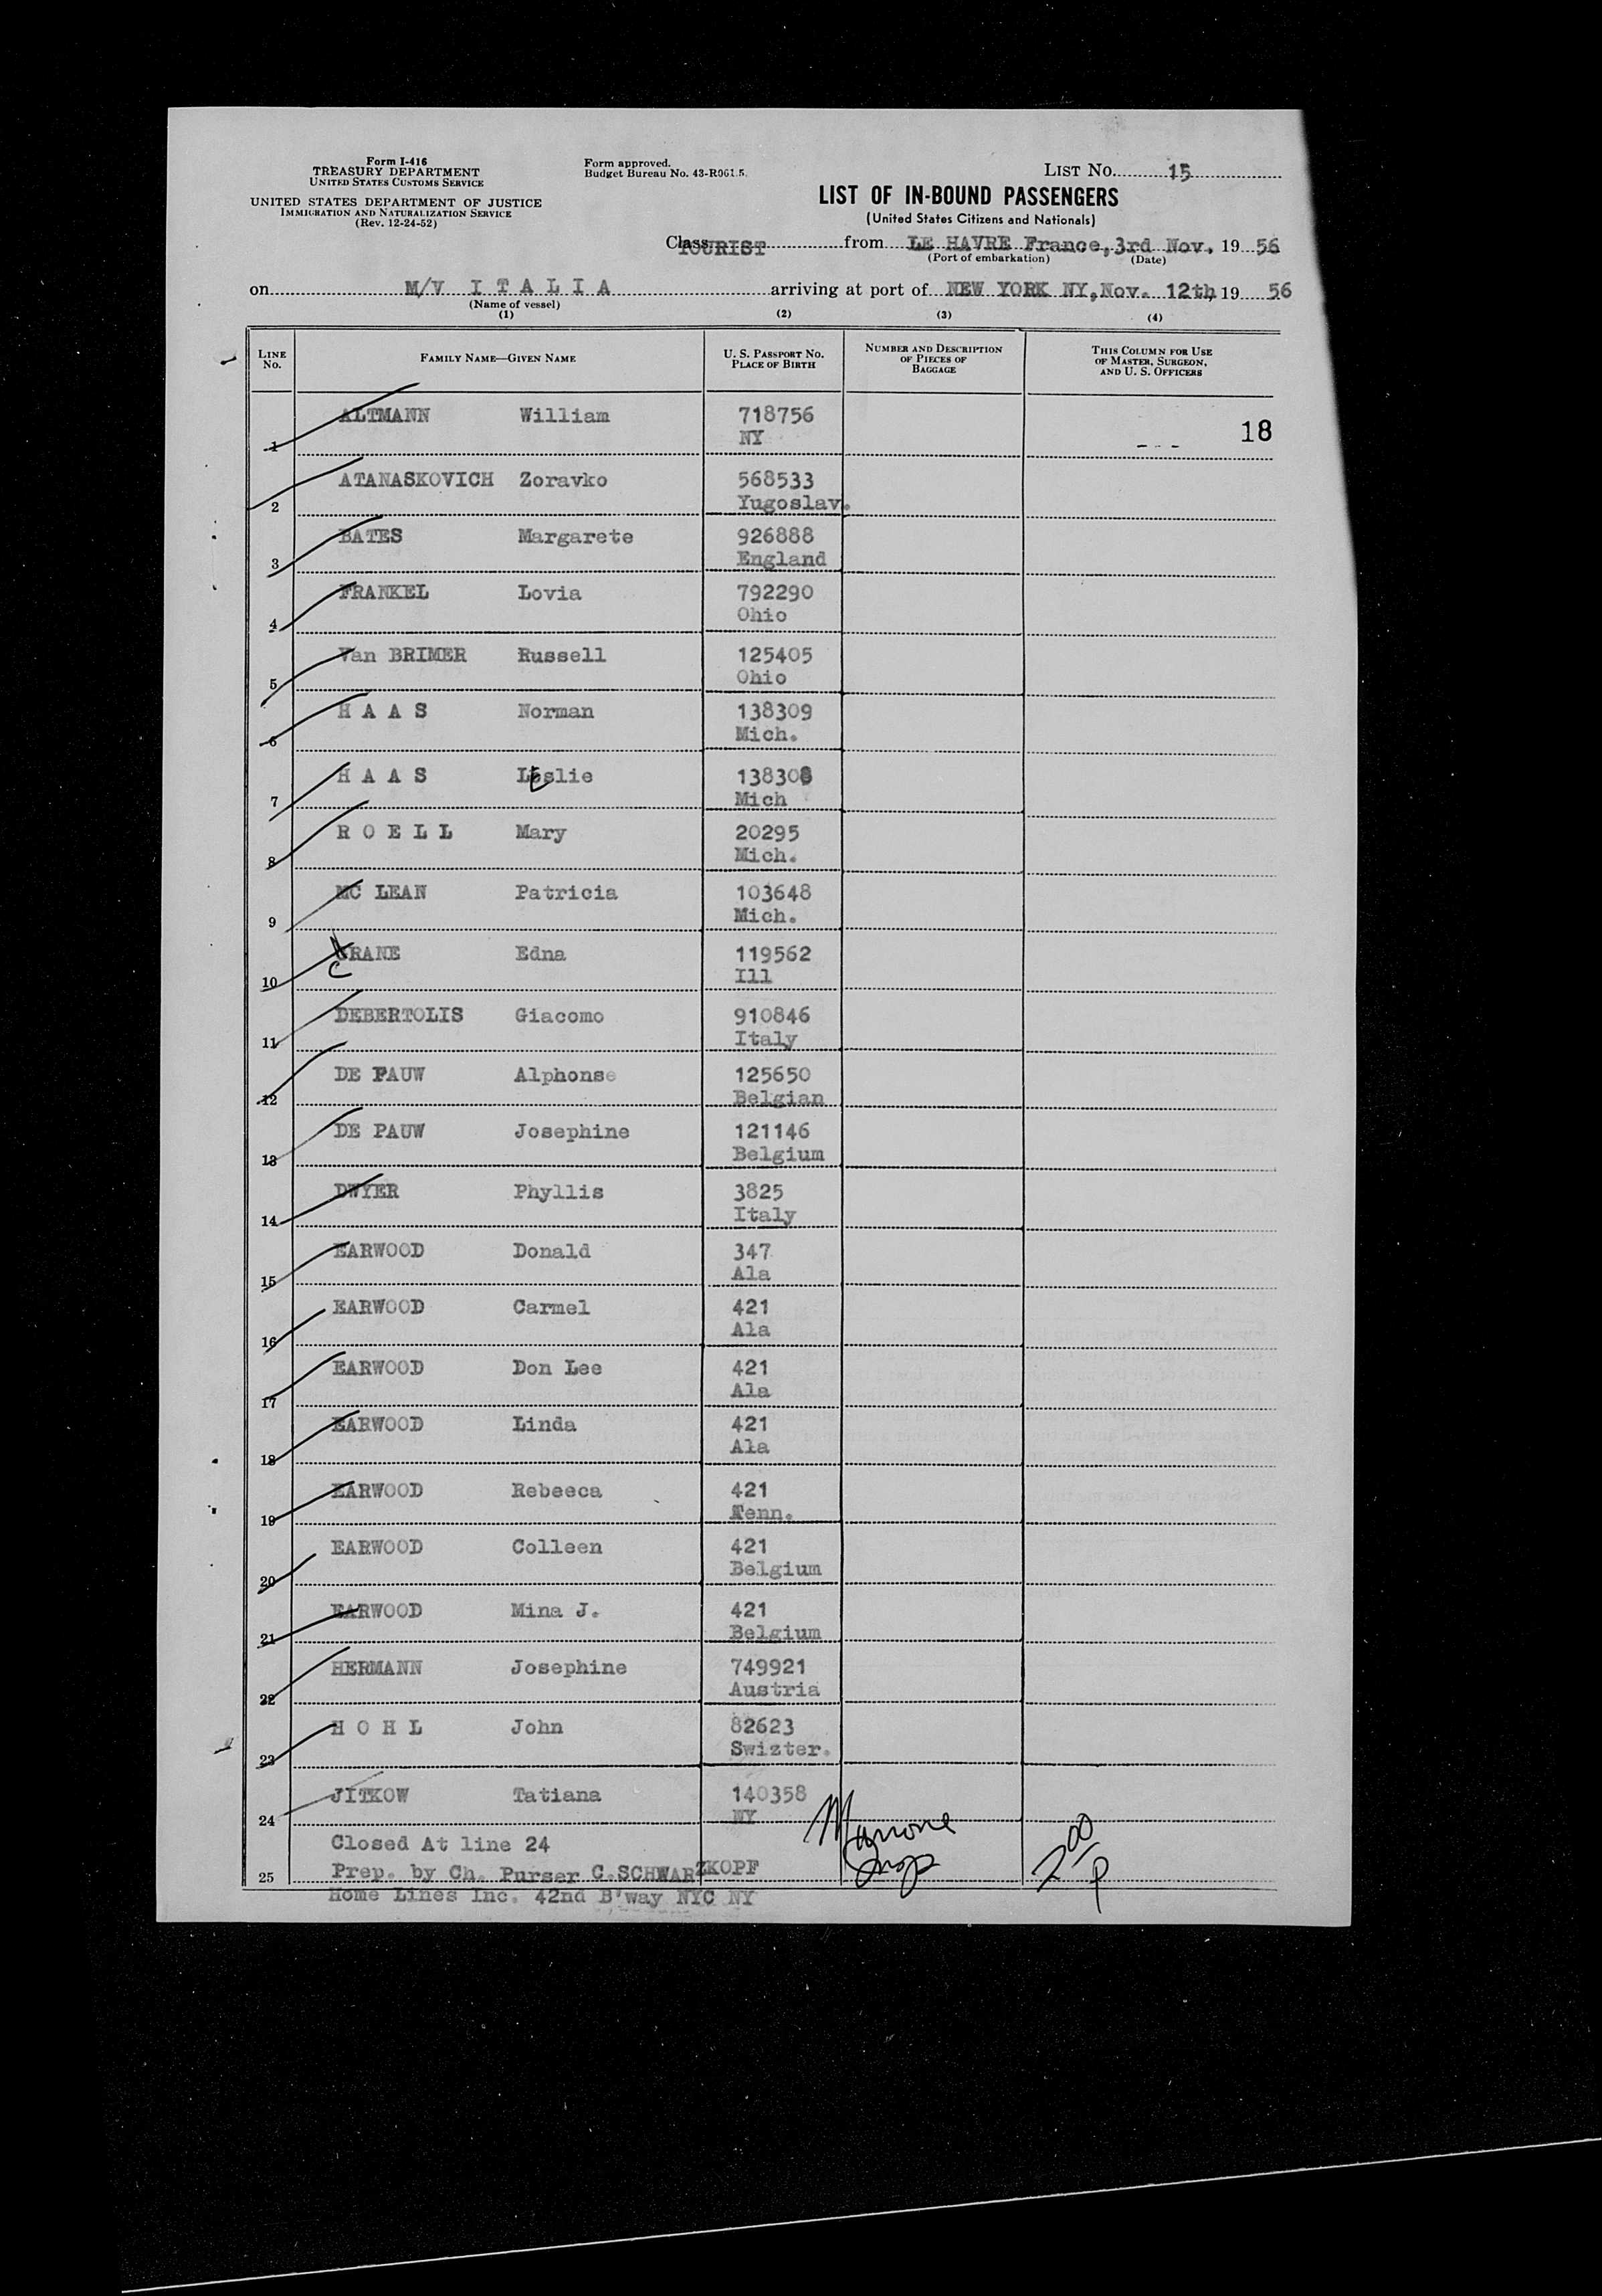 Form I-416
TREASURY DEPARTMENT
UNITED STATES CUSTOMS SERVICE
UNITED STATES DEPARTMENT OF JUSTICE
IMMIGRATION AND NATURALIZATION SERVICE
(Rev. 12-24-52)
Form approved.
Budget Bureau No. 43-R061.5.
LIST No. 15
LIST OF IN-BOUND PASSENGERS
(United States Citizens and Nationals)
Class TOURIST from LE HAVRE France, 3rd Nov. 19 56
(Port of embarkation) (Date)
on M/V I T A L I A arriving at port of NEW YORK NY, Nov. 12th, 19 56
(Name of vessel)
(1) (2) (3) (4)
LINE No. FAMILY NAME—GIVEN NAME U. S. PASSPORT NO. PLACE OF BIRTH NUMBER AND DESCRIPTION OF PIECES OF BAGGAGE THIS COLUMN FOR USE OF MASTER, SURGEON, AND U. S. OFFICERS
1 ALTMANN William 718756 NY --- 18
2 ATANASKOVICH Zoravko 568533 Yugoslav.
3 BATES Margarete 926888 England
4 FRANKEL Lovia 792290 Ohio
5 Van BRIMER Russell 125405 Ohio
6 H A A S Norman 138309 Mich.
7 H A A S Leslie 138308 Mich
8 R O E L L Mary 20295 Mich.
9 MC LEAN Patricia 103648 Mich.
10 CRANE Edna 119562 Ill
11 DEBERTOLIS Giacomo 910846 Italy
12 DE PAUW Alphonse 125650 Belgian
13 DE PAUW Josephine 121146 Belgium
14 DWYER Phyllis 3825 Italy
15 EARWOOD Donald 347 Ala
16 EARWOOD Carmel 421 Ala
17 EARWOOD Don Lee 421 Ala
18 EARWOOD Linda 421 Ala
19 EARWOOD Rebeeca 421 Tenn.
20 EARWOOD Colleen 421 Belgium
21 EARWOOD Mina J. 421 Belgium
22 HERMANN Josephine 749921 Austria
23 H O H L John 82623 Swizter.
24 JITKOW Tatiana 140358 NY
Closed At line 24
25 Prep. by Ch. Purser C.SCHWARZKOPF
Home Lines Inc. 42nd B'way NYC NY